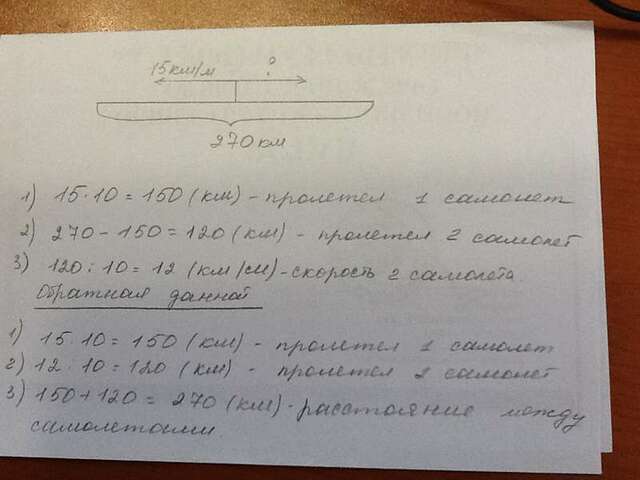 15км/м ?
270км
1) 15·10=150(км)-пролетел 1 самолет
2) 270-150=120(км)-пролетел 2 самолет
3) 120:10=12(км/м)-скорость 2 самолета
Обратная данной
1) 15·10=150(км)-пролетел 1 самолет
2) 12·10=120(км)-пролетел 2 самолет
3) 150+120=270(км)-расстояние между
самолетами.